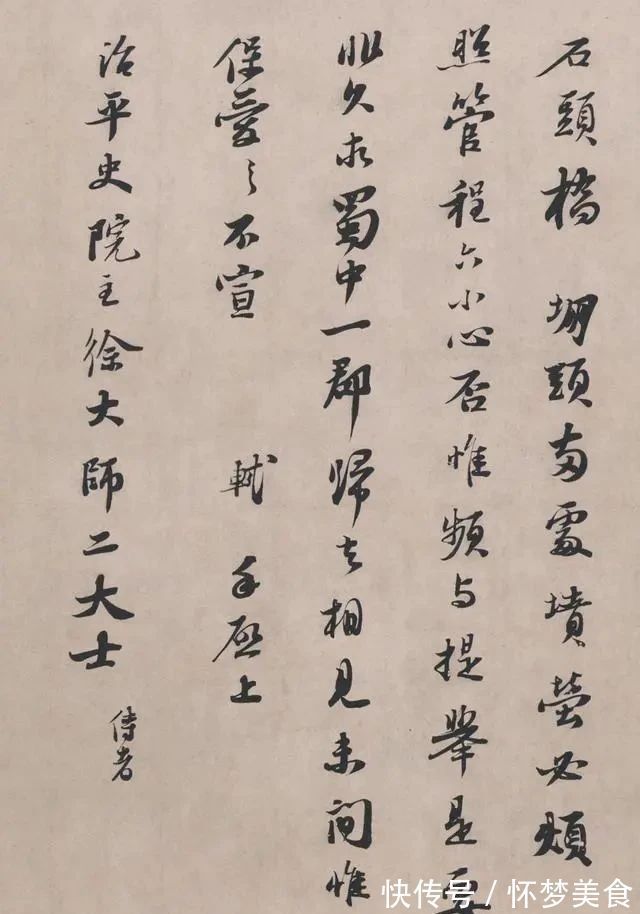 石頭橋 堋頭兩處墳塋必煩
照管程六小心否惟頻与提舉是要
非久求蜀中一郡歸去相見未間惟
保愛之不宣 軾 手啟上
治平史院主徐大師二大士
侍者
快传号 / 怀梦美食